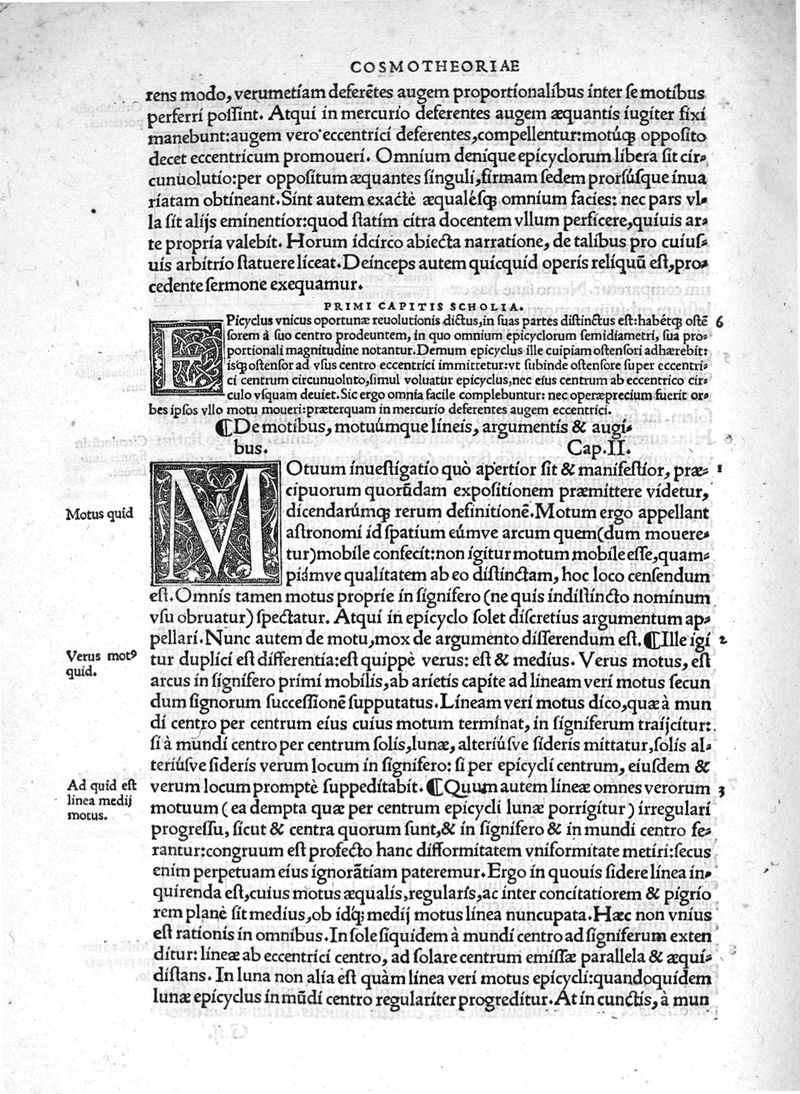 COSMOTHEORIAE
rens modo, verumetiam deferẽtes augem proportionalibus inter se motibus
perferri possint. Atqui in mercurio deferentes augem æquantis iugiter fixi
manebunt: augem vero eccentrici deferentes, compellentur: motúq; opposito
decet eccentricum promoueri. Omnium denique epicyclorum libera sit cir-
cunuolutio: per oppositum æquantes singuli, firmam sedem prorsúsque inua
riatam obtineant. Sint autem exactè æqualésq; omnium facies: nec pars vl-
la sit alijs eminentior: quod statim citra docentem vllum perficere, quiuis ar-
te propria valebit. Horum idcirco abiecta narratione, de talibus pro cuius-
uis arbitrio statuere liceat. Deinceps autem quicquid operis reliquũ est, pro-
cedente sermone exequamur.
PRIMI CAPITIS SCHOLIA.
EPicyclus vnicus oportunæ reuolutionis dictus, in suas partes distinctus est: habétq; ostẽ 6
sorem à suo centro prodeuntem, in quo omnium epicyclorum semidiametri, sua pro-
portionali magnitudine notantur. Demum epicyclus ille cuipiam ostensori adhærebit:
isq; ostensor ad vsus centro eccentrici immittetur: vt subinde ostensore super eccentri-
ci centrum circunuoluto, simul voluatur epicyclus, nec eius centrum ab eccentrico cir-
culo vsquam deuiet. Sic ergo omnia facile complebuntur: nec operæprecium fuerit or-
bes ipsos vllo motu moueri: præterquam in mercurio deferentes augem eccentrici.
¶De motibus, motuúmque lineis, argumentis & augi-
bus. Cap. II.
MOtuum inuestigatio quò apertior sit & manifestior, præ- 1
cipuorum quorũdam expositionem præmittere videtur,
dicendarúmq; rerum definitionẽ. Motum ergo appellant
Motus quid
astronomi id spatium eúmve arcum quem (dum mouere-
tur) mobile confecit: non igitur motum mobile esse, quam-
piámve qualitatem ab eo distinctam, hoc loco censendum
est. Omnis tamen motus proprie in signifero (ne quis indistincto nominum
vsu obruatur) spectatur. Atqui in epicyclo solet discretius argumentum ap-
pellari. Nunc autem de motu, mox de argumento disserendum est. ¶Ille igi 2
Verus motꝰ
quid.
tur duplici est differentia: est quippè verus: est & medius. Verus motus, est
arcus in signifero primi mobilis, ab arietis capite ad lineam veri motus secun
dum signorum successionẽ supputatus. Lineam veri motus dico, quæ à mun
di centro per centrum eius cuius motum terminat, in signiferum traijcitur:
si à mundi centro per centrum solis, lunæ, alteriúsve sideris mittatur, solis al-
teriúsve sideris verum locum in signifero: si per epicycli centrum, eiusdem &
Ad quid est
linea medij
motus.
verum locum promptè suppeditabit. ¶Quum autem lineæ omnes verorum 3
motuum (ea dempta quæ per centrum epicycli lunæ porrigitur) irregulari
progressu, sicut & centra quorum sunt, & in signifero & in mundi centro fe-
rantur: congruum est profecto hanc difformitatem vniformitate metiri: secus
enim perpetuam eius ignorãtiam pateremur. Ergo in quouis sidere linea in-
quirenda est, cuius motus æqualis, regularis, ac inter concitatiorem & pigrio
rem planè sit medius, ob idq; medij motus linea nuncupata. Hæc non vnius
est rationis in omnibus. In sole siquidem à mundi centro ad signiferum exten
ditur: lineæ ab eccentrici centro, ad solare centrum emissæ parallela & æqui-
distans. In luna non alia est quàm linea veri motus epicycli: quandoquidem
lunæ epicyclus in mũdi centro regulariter progreditur. At in cunctis, à mun